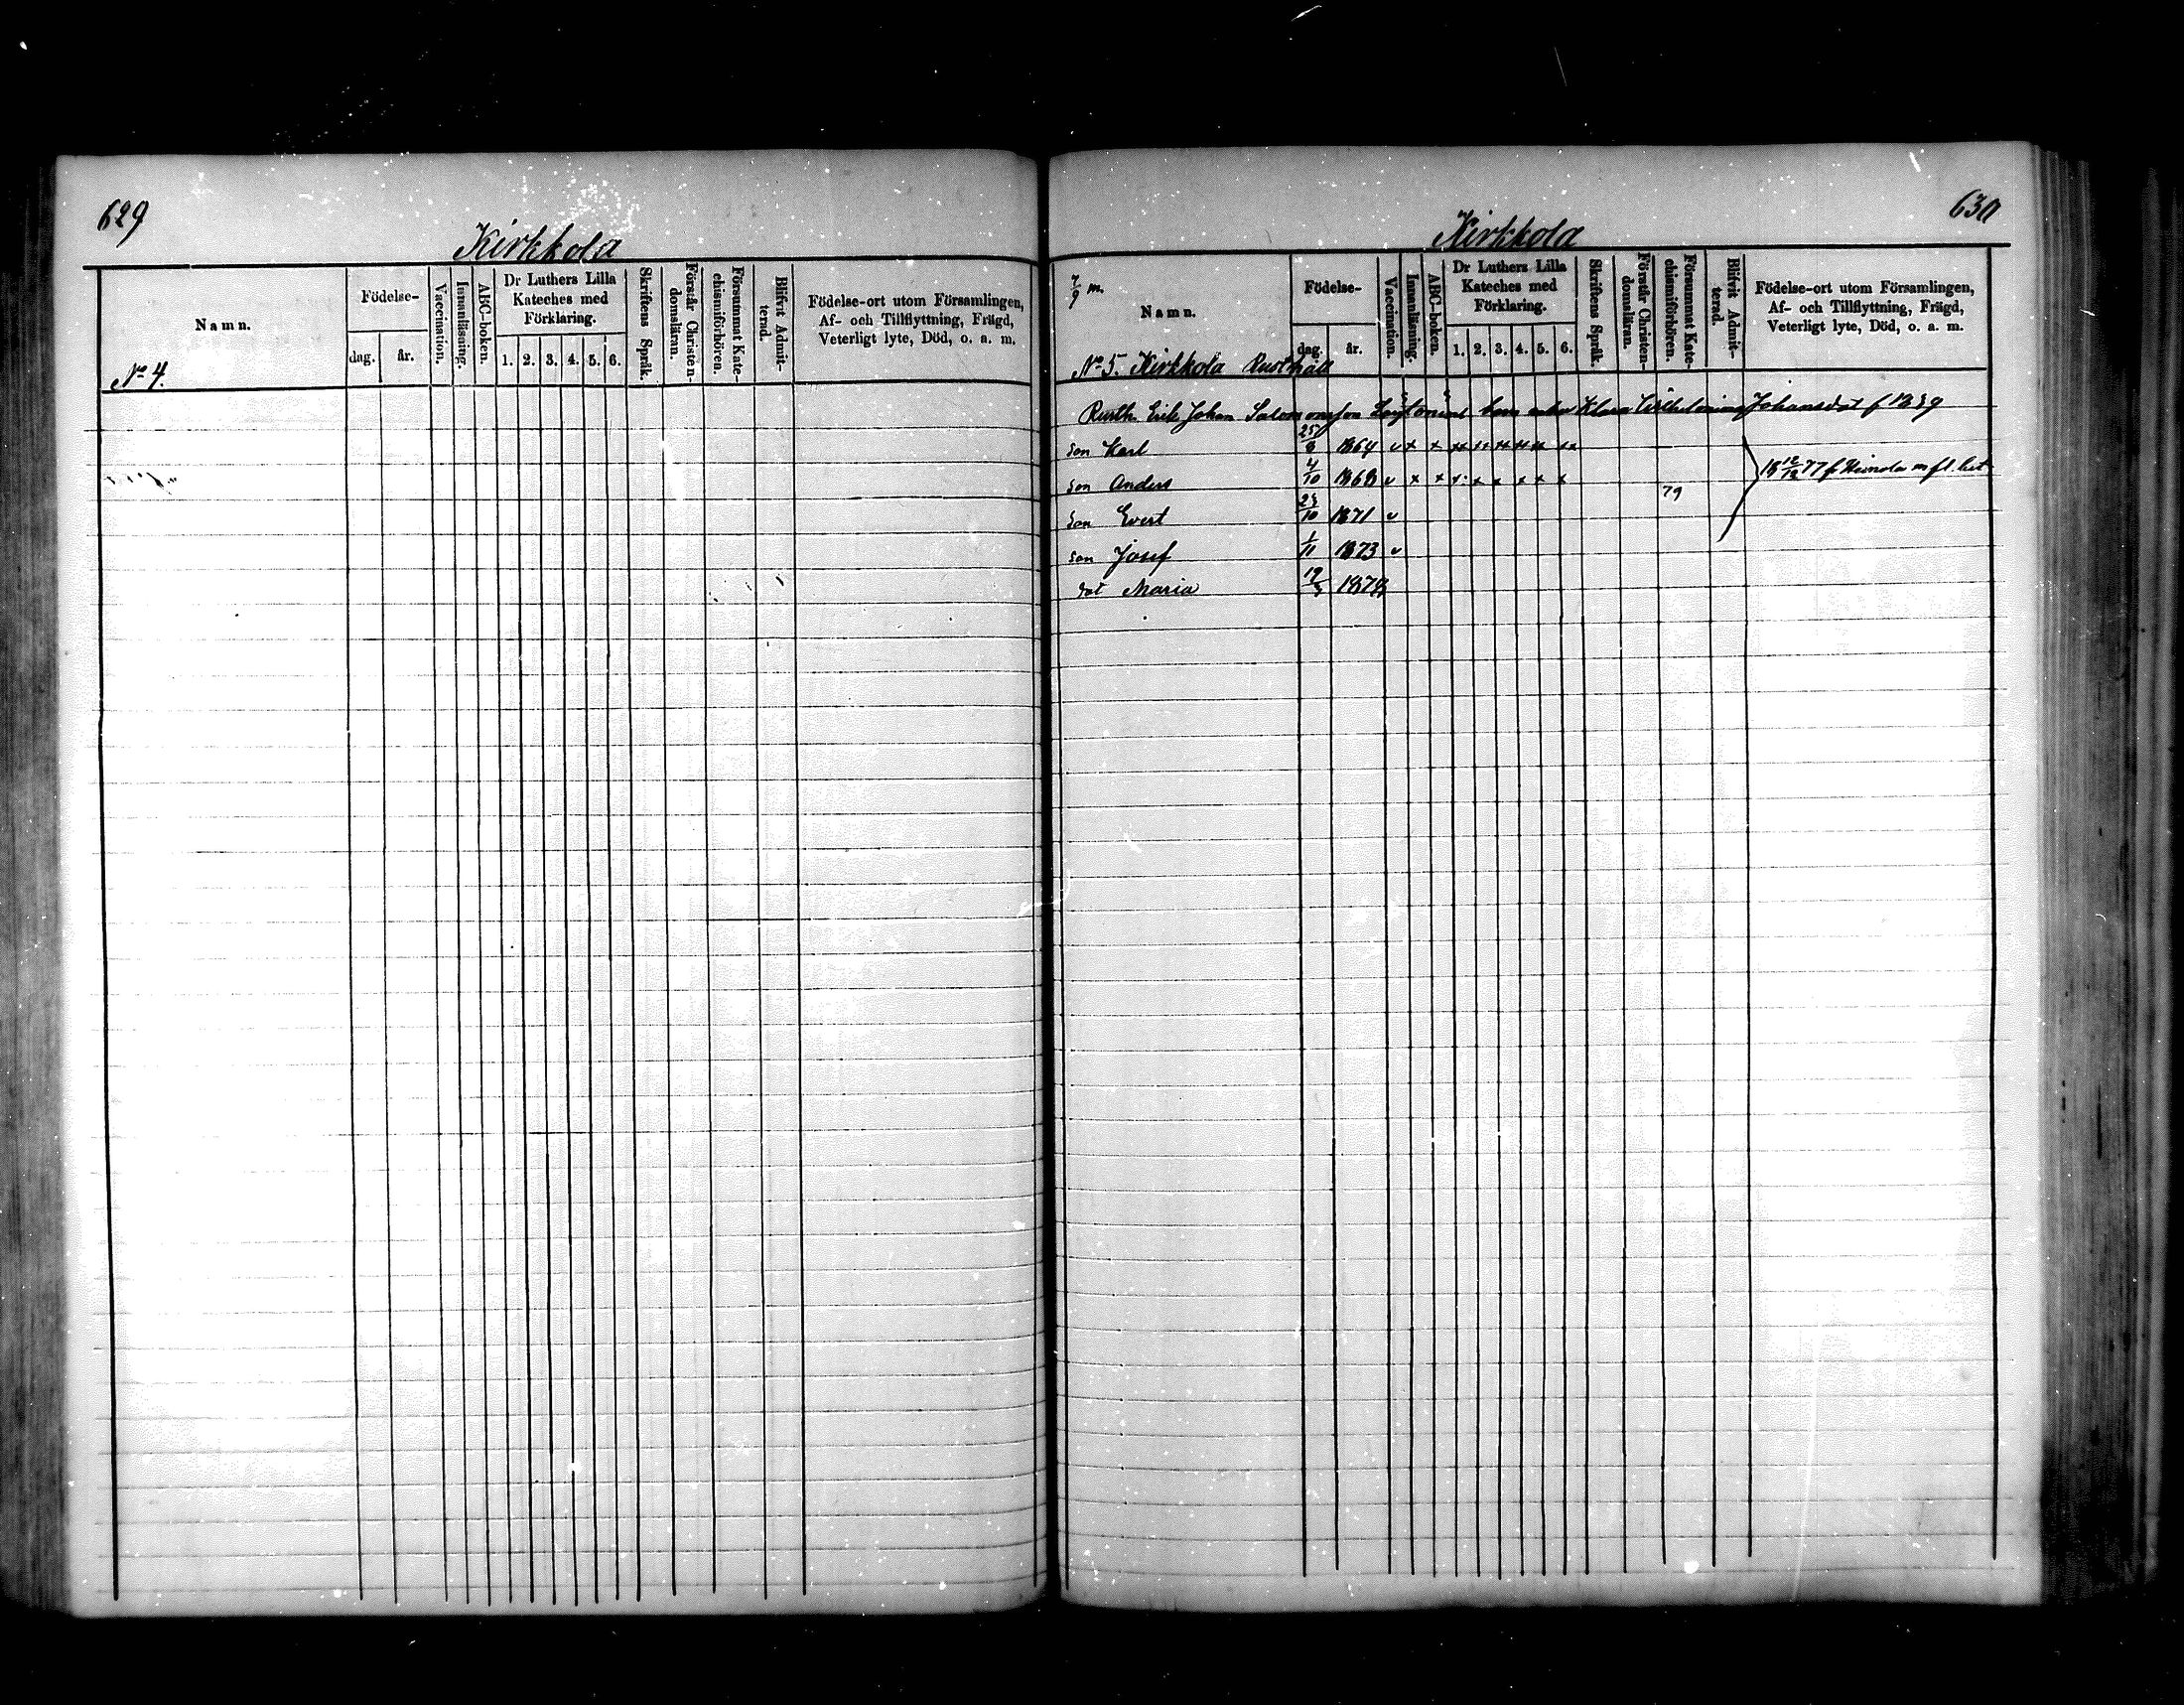 629
Kirkkola
Namn.
Födelse-
dag.
år.
Vaccination.
Innanläsning.
ABC-boken.
Dr Luthers Lilla
Kateches med
Förklaring.
1. 2. 3. 4. 5. 6.
Skriftens Språk.
Förstår Christen-
domsläran.
Försummat Kate-
chismiförhören.
Blifvit Admit-
terad.
Födelse-ort utom Församlingen,
Af- och Tillflyttning, Frägd,
Veterligt lyte, Död, o. a. m.
No 4.
630
Kirkkola
7/9 m.
Namn.
Födelse-
dag.
år.
Vaccination.
Innanläsning.
ABC-boken.
Dr Luthers Lilla
Kateches med
Förklaring.
1. 2. 3. 4. 5. 6.
Skriftens Språk.
Förstår Christen-
domsläran.
Försummat Kate-
chismiförhören.
Blifvit Admit-
terad.
Födelse-ort utom Församlingen,
Af- och Tillflyttning, Frägd,
Veterligt lyte, Död, o. a. m.
No 5. Kirkkola Rusthåll
Rusth. Erik Johan Salomonsson barn Klara Wilhelmina Johansdot f 1839
son Karl 1864 v x x x x x x x x
son Anders 4/10 1868 v x x x x x x x x
79
18 12/12 77 fr Heinola m fl. bet
son Evert 23/10 1871 v
son Josef 1/11 1873 v
dot Maria 1878